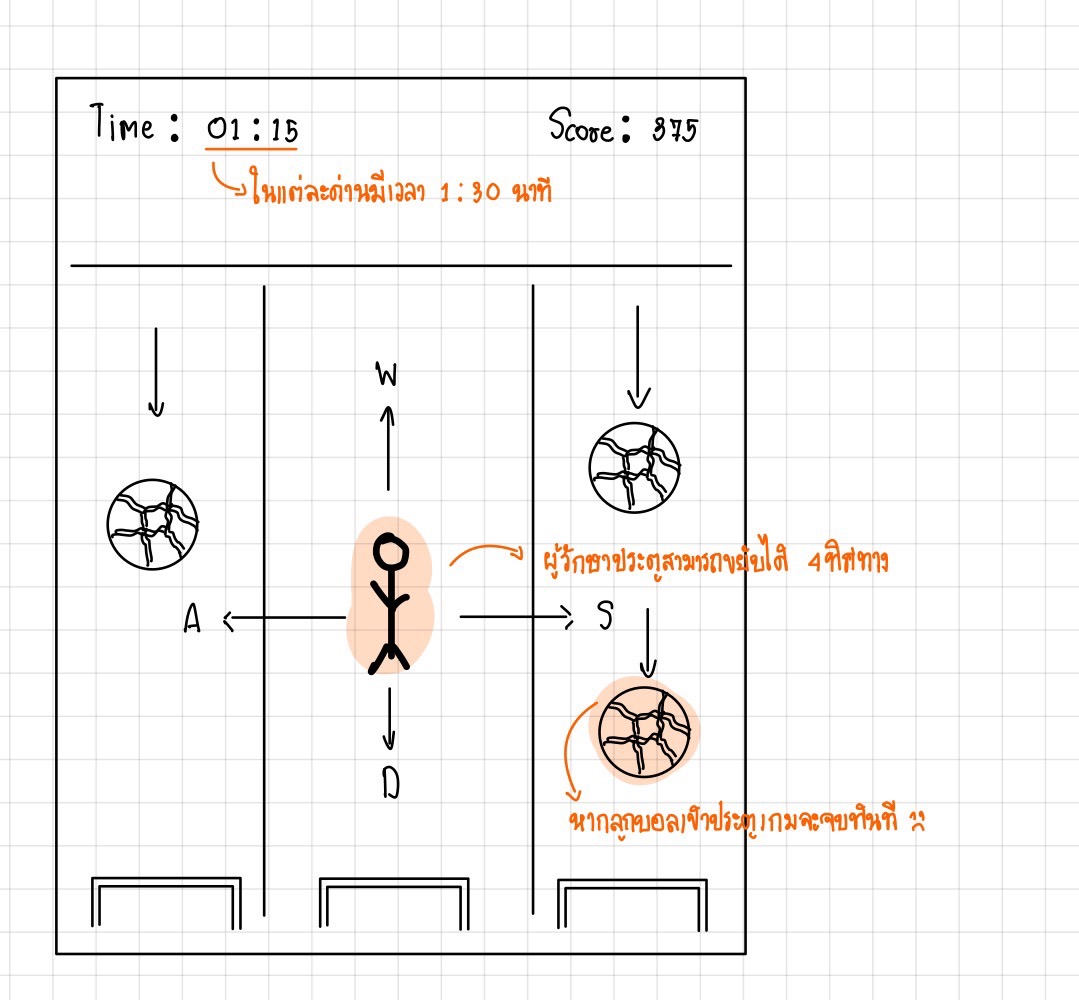 Time : 01 : 15
Score : 375
ในแต่ละด่านมีเวลา 1 : 30 นาที
W
ผู้รักษาประตูสามารถขยับได้ 4 ทิศทาง
A
S
D
หากลูกบอลเข้าประตูเกมจะจบทันที